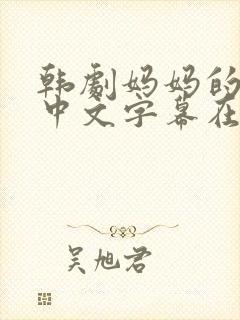 韩劇妈妈的
中文字幕在
吴旭君